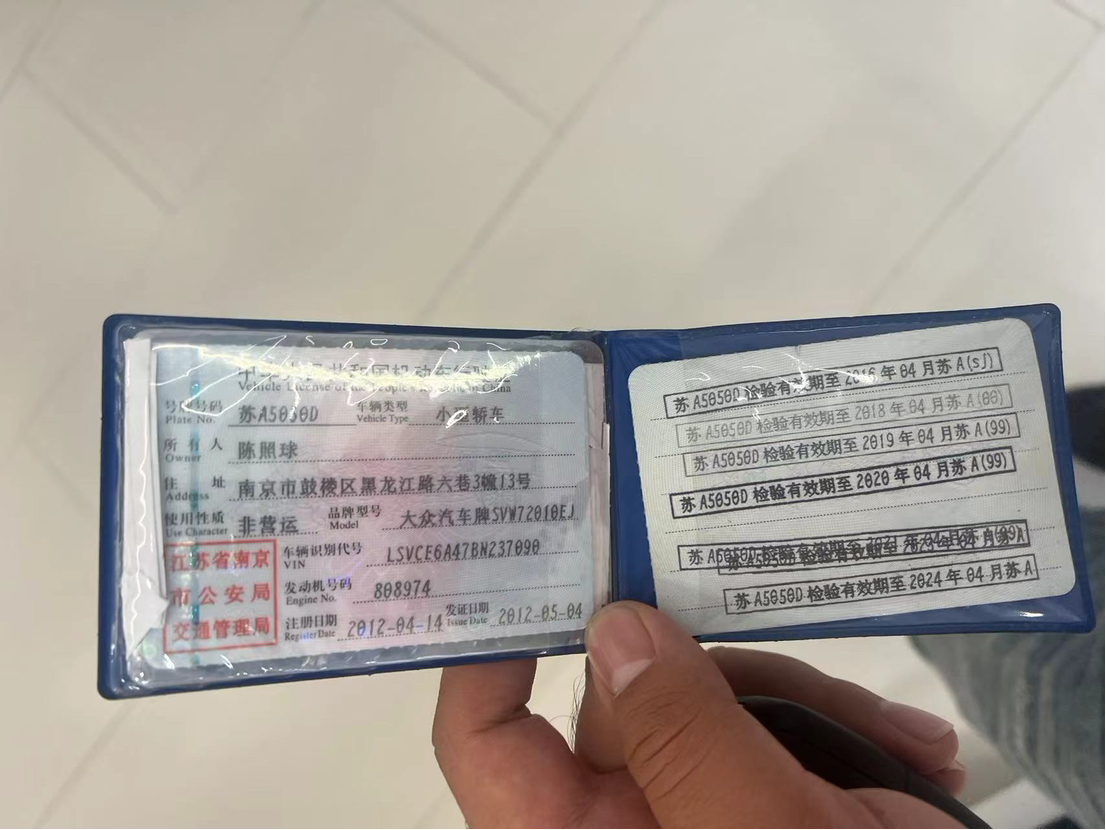 中华人民共和国机动车行驶证
Vehicle License of the People's Republic of China
号牌号码 Plate No. 苏A5050D 车辆类型 Vehicle Type 小型轿车
所有人 Owner 陈照球
住址 Address 南京市鼓楼区黑龙江路六巷3幢13号
使用性质 Use Character 非营运 品牌型号 Model 大众汽车牌SVW72010EJ
江苏省南京市公安局交通管理局
车辆识别代号 VIN LSVCE6A47BN237090
发动机号码 Engine No. 808974
注册日期 Register Date 2012-04-14 发证日期 Issue Date 2012-05-04
苏A5050D 检验有效期至 2016年04月苏A(sj)
苏A5050D 检验有效期至 2018年04月苏A(00)
苏A5050D 检验有效期至 2019年04月苏A(99)
苏A5050D 检验有效期至 2020年04月苏A(99)
苏A5050D 检验有效期至 2021年04月苏A(99)
苏A5050D 检验有效期至 2024年04月苏A